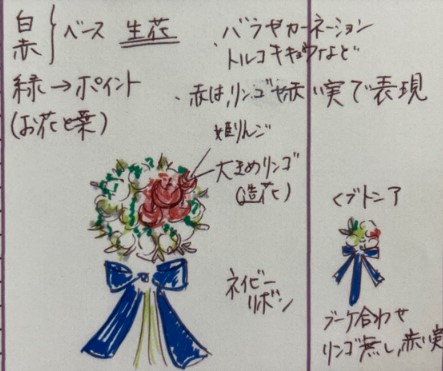 白
赤
ベース 生花
・バラやカーネーション
トルコキキョウなど
緑→ポイント
(お花と葉)
・赤は、リンゴや赤い実で表現
姫りんご
大きめリンゴ
(造花)
ネイビー
リボン
<ブトニア
ブーケ合わせ
リンゴ無し、赤い実